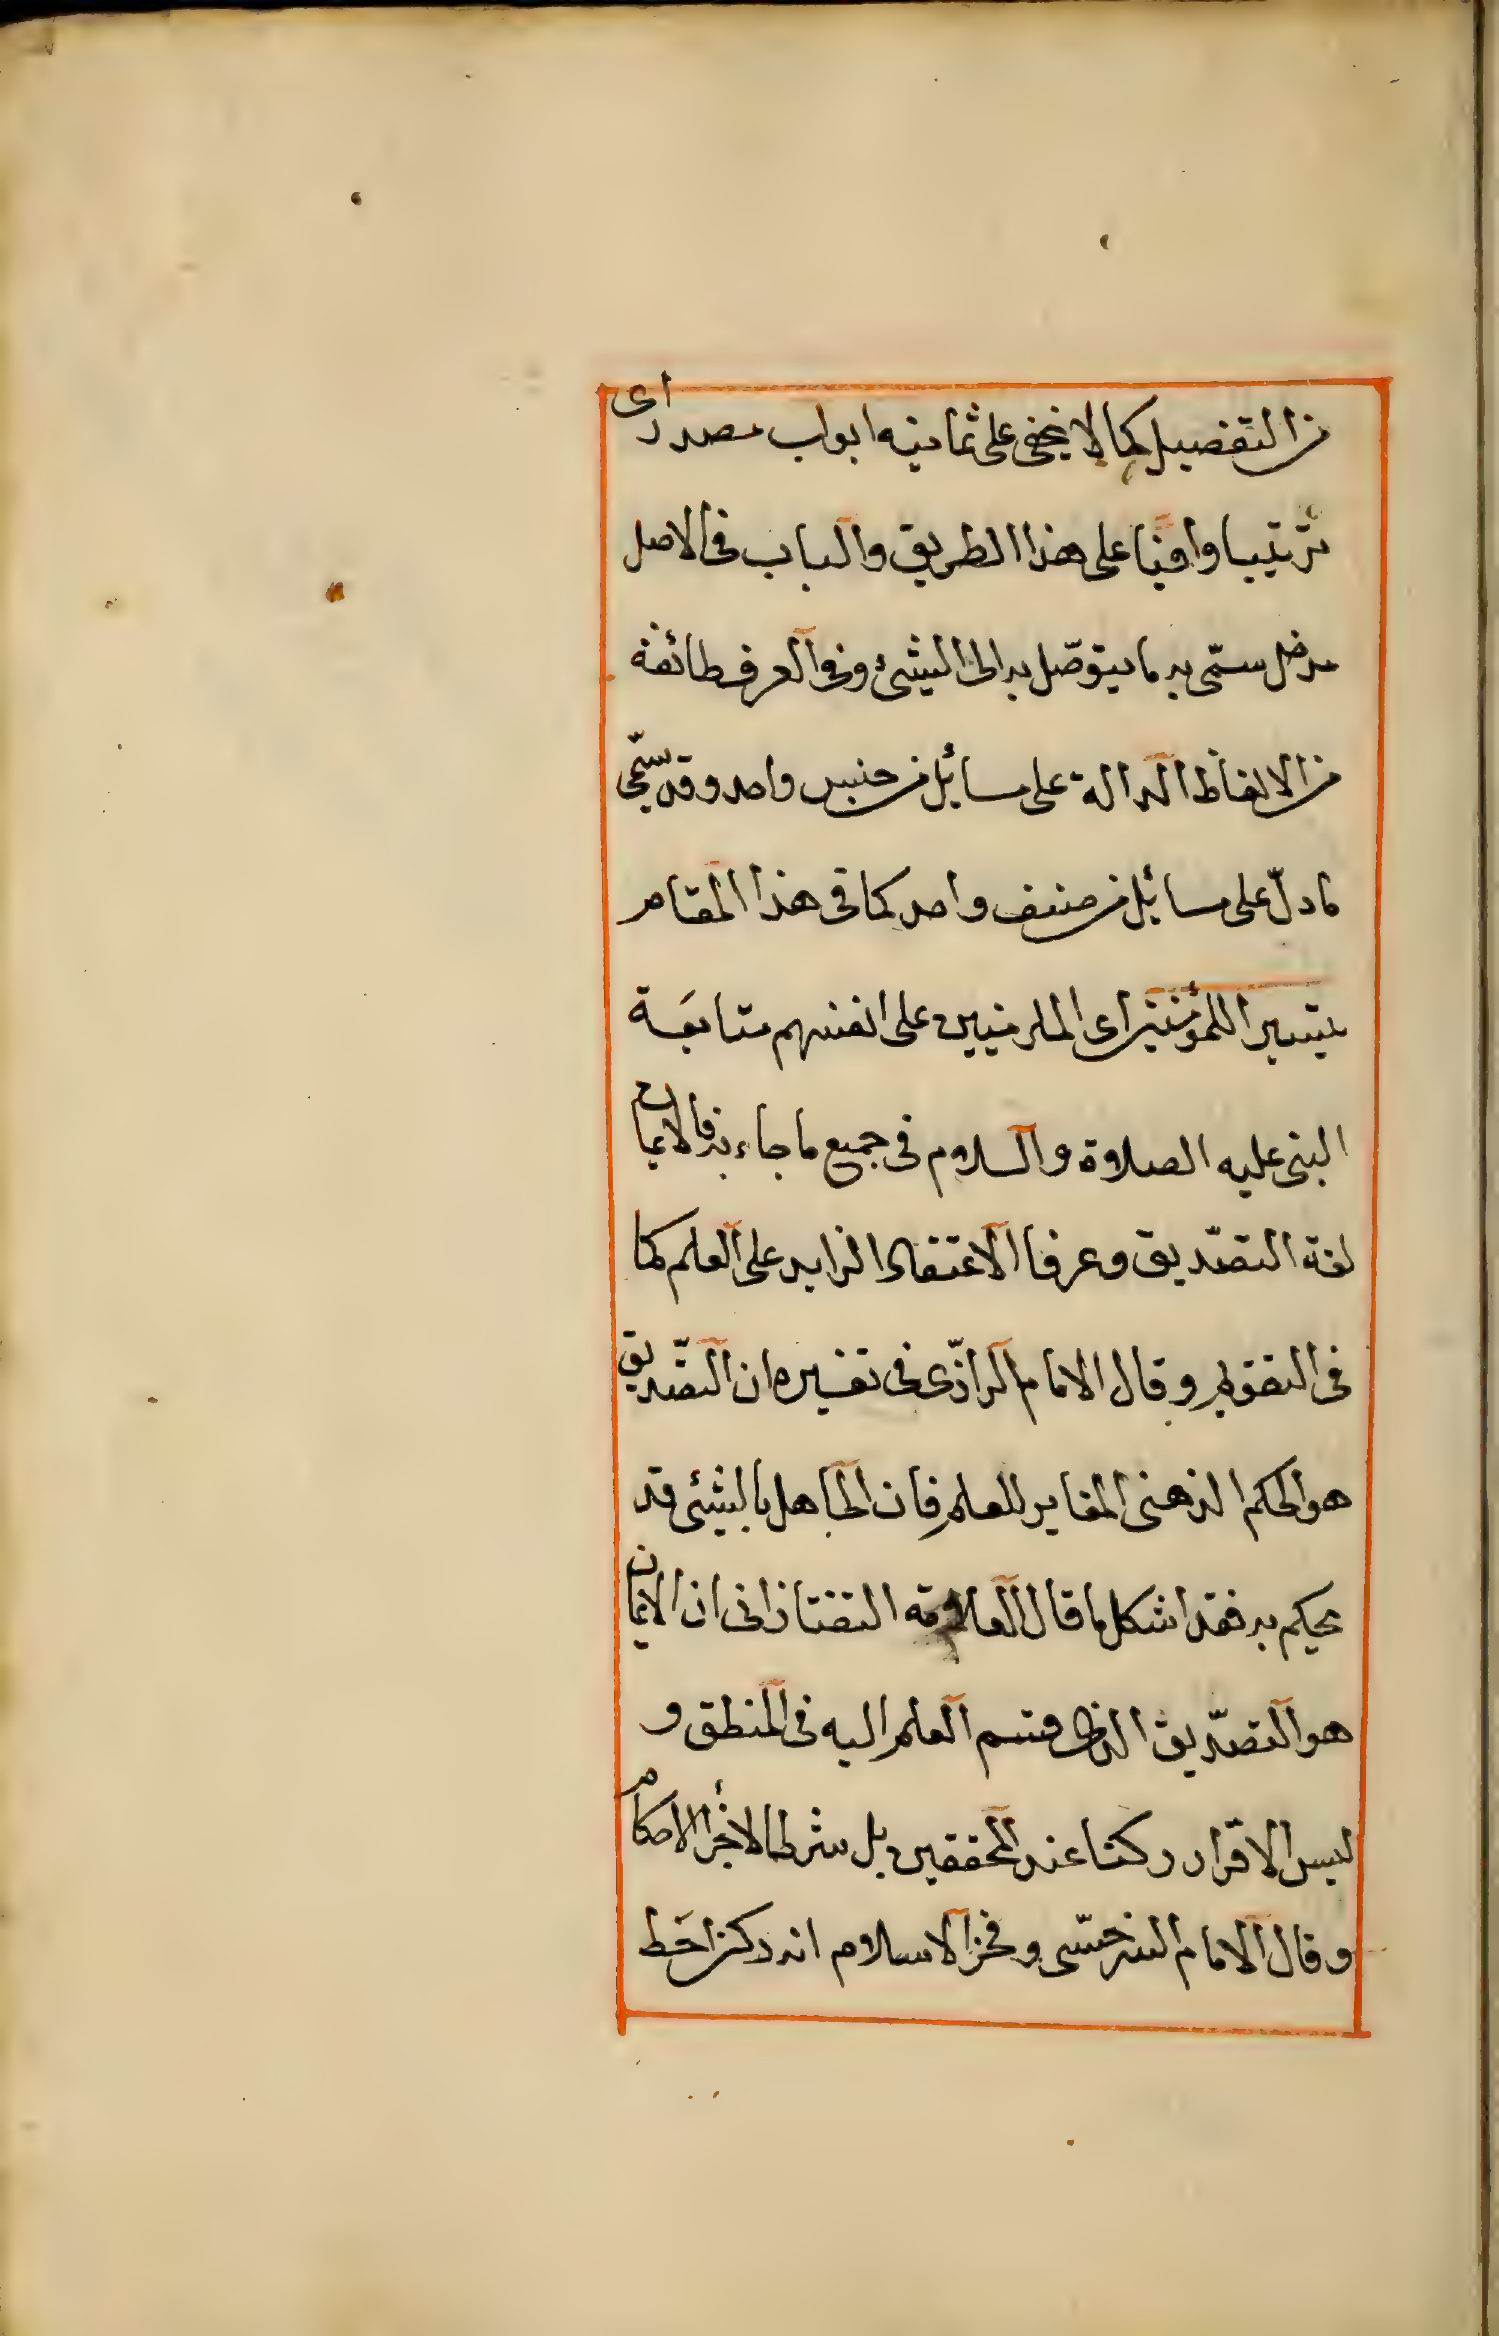 من التفصيل كما لا يخفى على ثمانيه ابواب مصدر اى
ترتيبا وافيا على هذا الطريق والباب فى الاصل
مدخل سمّى به ما يتوصّل به الى الشئ وفى العرف طائفة
من الالفاظ الدالة على مسائل من جنس واحد وقد سمّى
ما دلّ على مسائل من صنف واحد كما فى هذا المقام
تيسيرا للمؤمنين اى الملزمين على انفسهم متابعَة
النبى عليه الصلاة والسلام فى جميع ما جاء به فالايمان
لغة التصديق وعرفا الاعتقاد الزايد على العلم كما
فى التقويم وقال الامام الرازى فى تفسيره ان التصديق
هو الحكم الذهنى المغاير للعلم فان الجاهل بالشئ قد
يحكم به فقد اشكل ما قال العلامة التفتازانى ان الايمان
هو التصديق الذى قسم العلم اليه فى المنطق و
ليس الاقرار ركنا عند المحققين بل شرط لاجراء الاحكام
وقال الامام السرخسى وفخر الاسلام انه ركن احَط